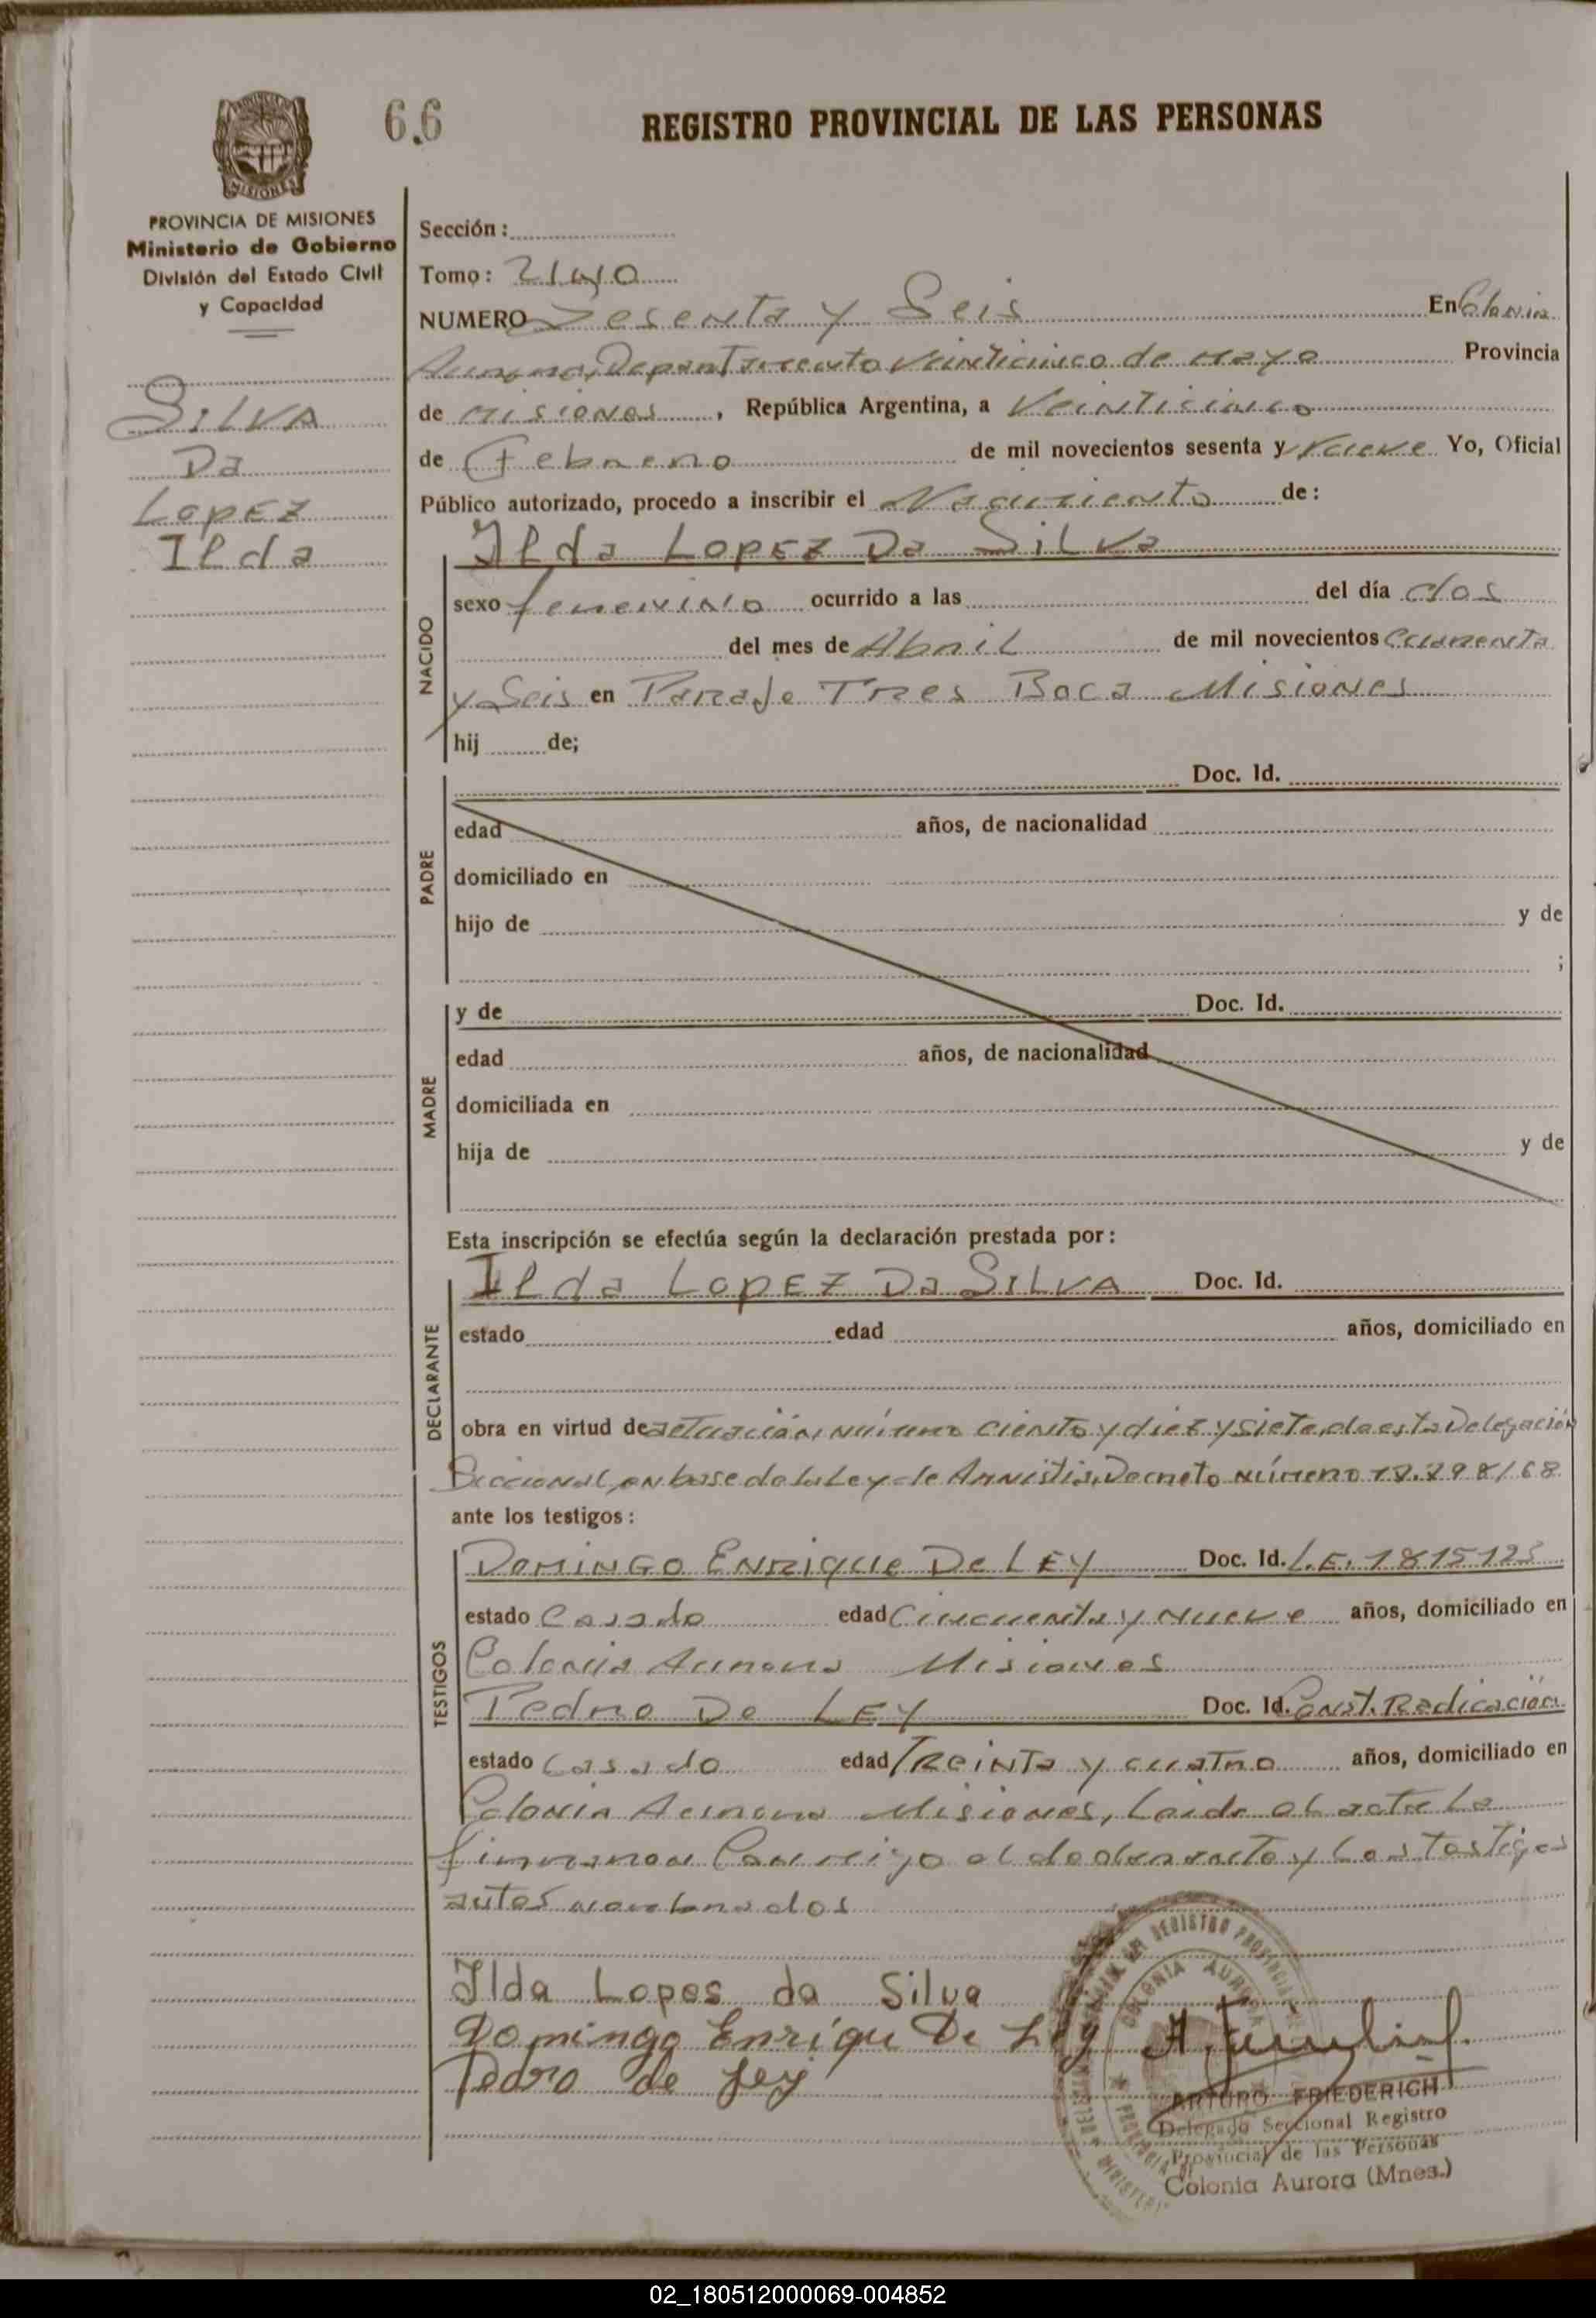 66
REGISTRO PROVINCIAL DE LAS PERSONAS
MISIONES
PROVINCIA DE MISIONES
Ministerio de Gobierno
División del Estado Civil
y Capacidad
SILVA
Da
LOPEZ
Ilda
Sección:
Tomo:
NUMERO Sesenta y Seis En Colonia
Aurora, Departamento Veinticinco de Mayo Provincia
de Misiones, República Argentina, a Veinticinco
de Febrero de mil novecientos sesenta y nueve Yo, Oficial
Público autorizado, procedo a inscribir el Nacimiento de:
NACIDO
Ilda LOPEZ Da SILVa
sexo femenino ocurrido a las del día dos
del mes de Abril de mil novecientos Cuarenta
y Seis en Paraje Tres Boca Misiones
hij de;
PADRE
Doc. Id.
edad años, de nacionalidad
domiciliado en
hijo de y de
;
MADRE
y de Doc. Id.
edad años, de nacionalidad
domiciliada en
hija de y de
Esta inscripción se efectúa según la declaración prestada por:
DECLARANTE
Ilda LOPEZ Da SILVA Doc. Id.
estado edad años, domiciliado en
obra en virtud de actuación número ciento y diez y siete, de esta Delegación
Seccional, en base de la Ley de Amnistia, Decreto número /68
ante los testigos:
TESTIGOS
DOMINGO ENRIQUE De LEY Doc. Id. L.E. 1815123
estado Casado edad Cincuenta y nueve años, domiciliado en
Colonia Aurora Misiones
Pedro De LEY Doc. Id. Const. Radicación
estado Casado edad Treinta y cuatro años, domiciliado en
Colonia Aurora Misiones, Leida el acta la
firmaron Conmigo el declarante y los Testigos
antes nombrados
Ilda Lopes da Silva
Domingo Enriqu De Ley
Pedro de Ley
REGISTRO PROVINCIAL
COLONIA AURORA
ARTURO FRIEDERICH
Delegado Seccional Registro
Provincial de las Personas
Colonia Aurora (Mnes.)
02_180512000069-004852